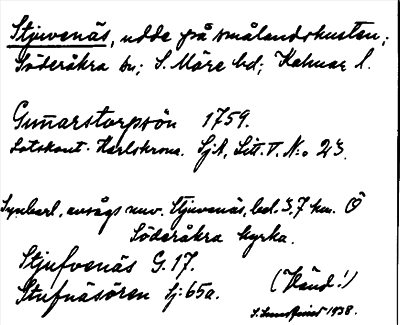 Stjuvenäs, udde på smålandskusten;
Söderåkra sn; S. Möre hd; Kalmar l.
Gunnarstorpsön 1759.
Lotskont. Karlskrona. SjA, Litt. V. N:o 23.
Synbarl. avsågs nuv. Stjuvenäs, bel. 3,7 km. Ö
Söderåkra kyrka.
Stjufvenäs G. 17.
Stufnäsören Sj: 65a. (Känd!)
1938.